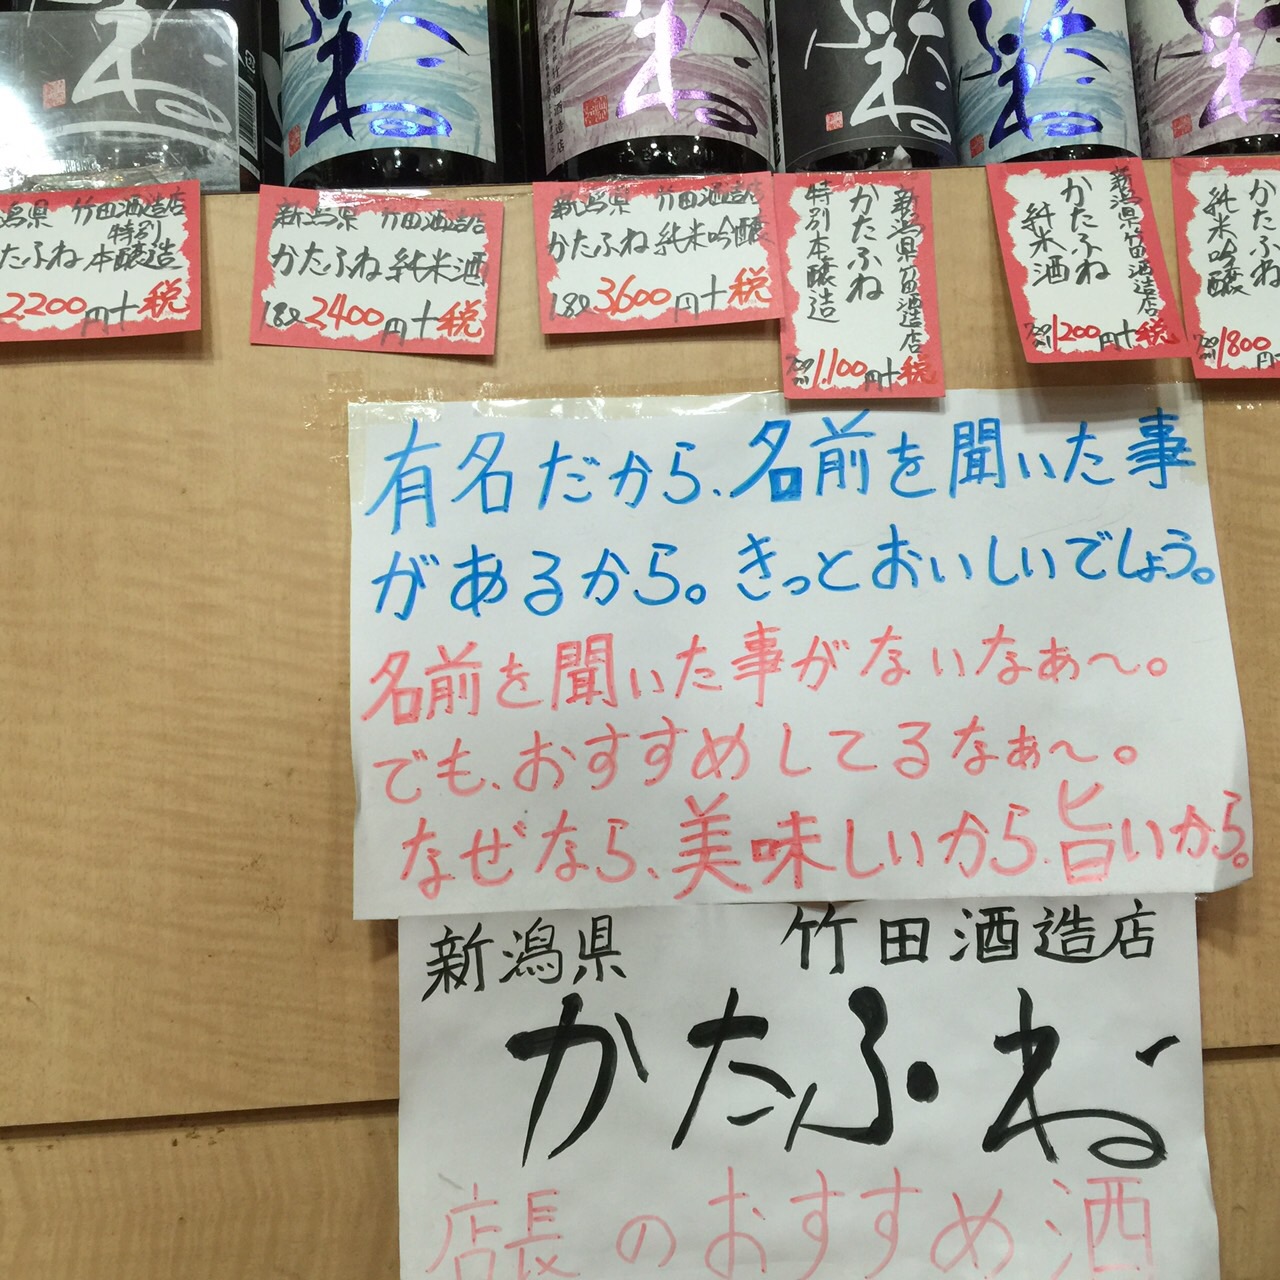 竹田酒造店
特別
たふね 本醸造
2200円+税
新潟県 竹田酒造店
かたふね 純米酒
1.8ℓ 2400円+税
新潟県 竹田酒造店
かたふね 純米吟醸
1.8ℓ 3600円+税
新潟県竹田酒造店
かたふね
特別本醸造
1,100円+税
新潟県竹田酒造店
かたふね
純米酒
1200円+税
かたふね
純米吟醸
1800円
有名だから、名前を聞いた事
があるから。きっとおいしいでしょう。
名前を聞いた事がないなぁ〜。
でも、おすすめしてるなぁ〜。
なぜなら、美味しいから、旨いから。
新潟県 竹田酒造店
かたふね
店長のおすすめ酒